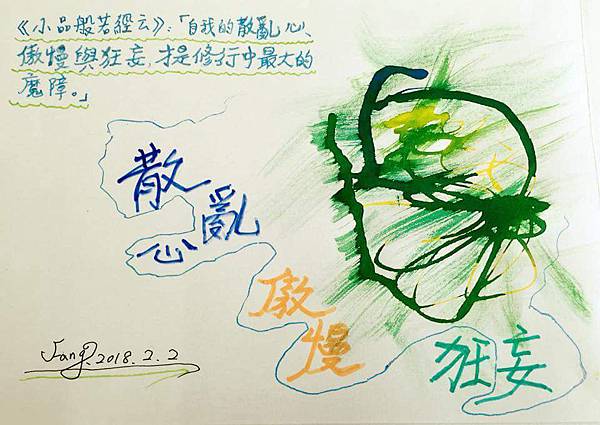 《小品般若經云》:「自我的散亂心、
傲慢與狂妄,才是修行中最大的
魔障。」
散亂
心
傲
慢
狂妄
Jang.2018.2.2